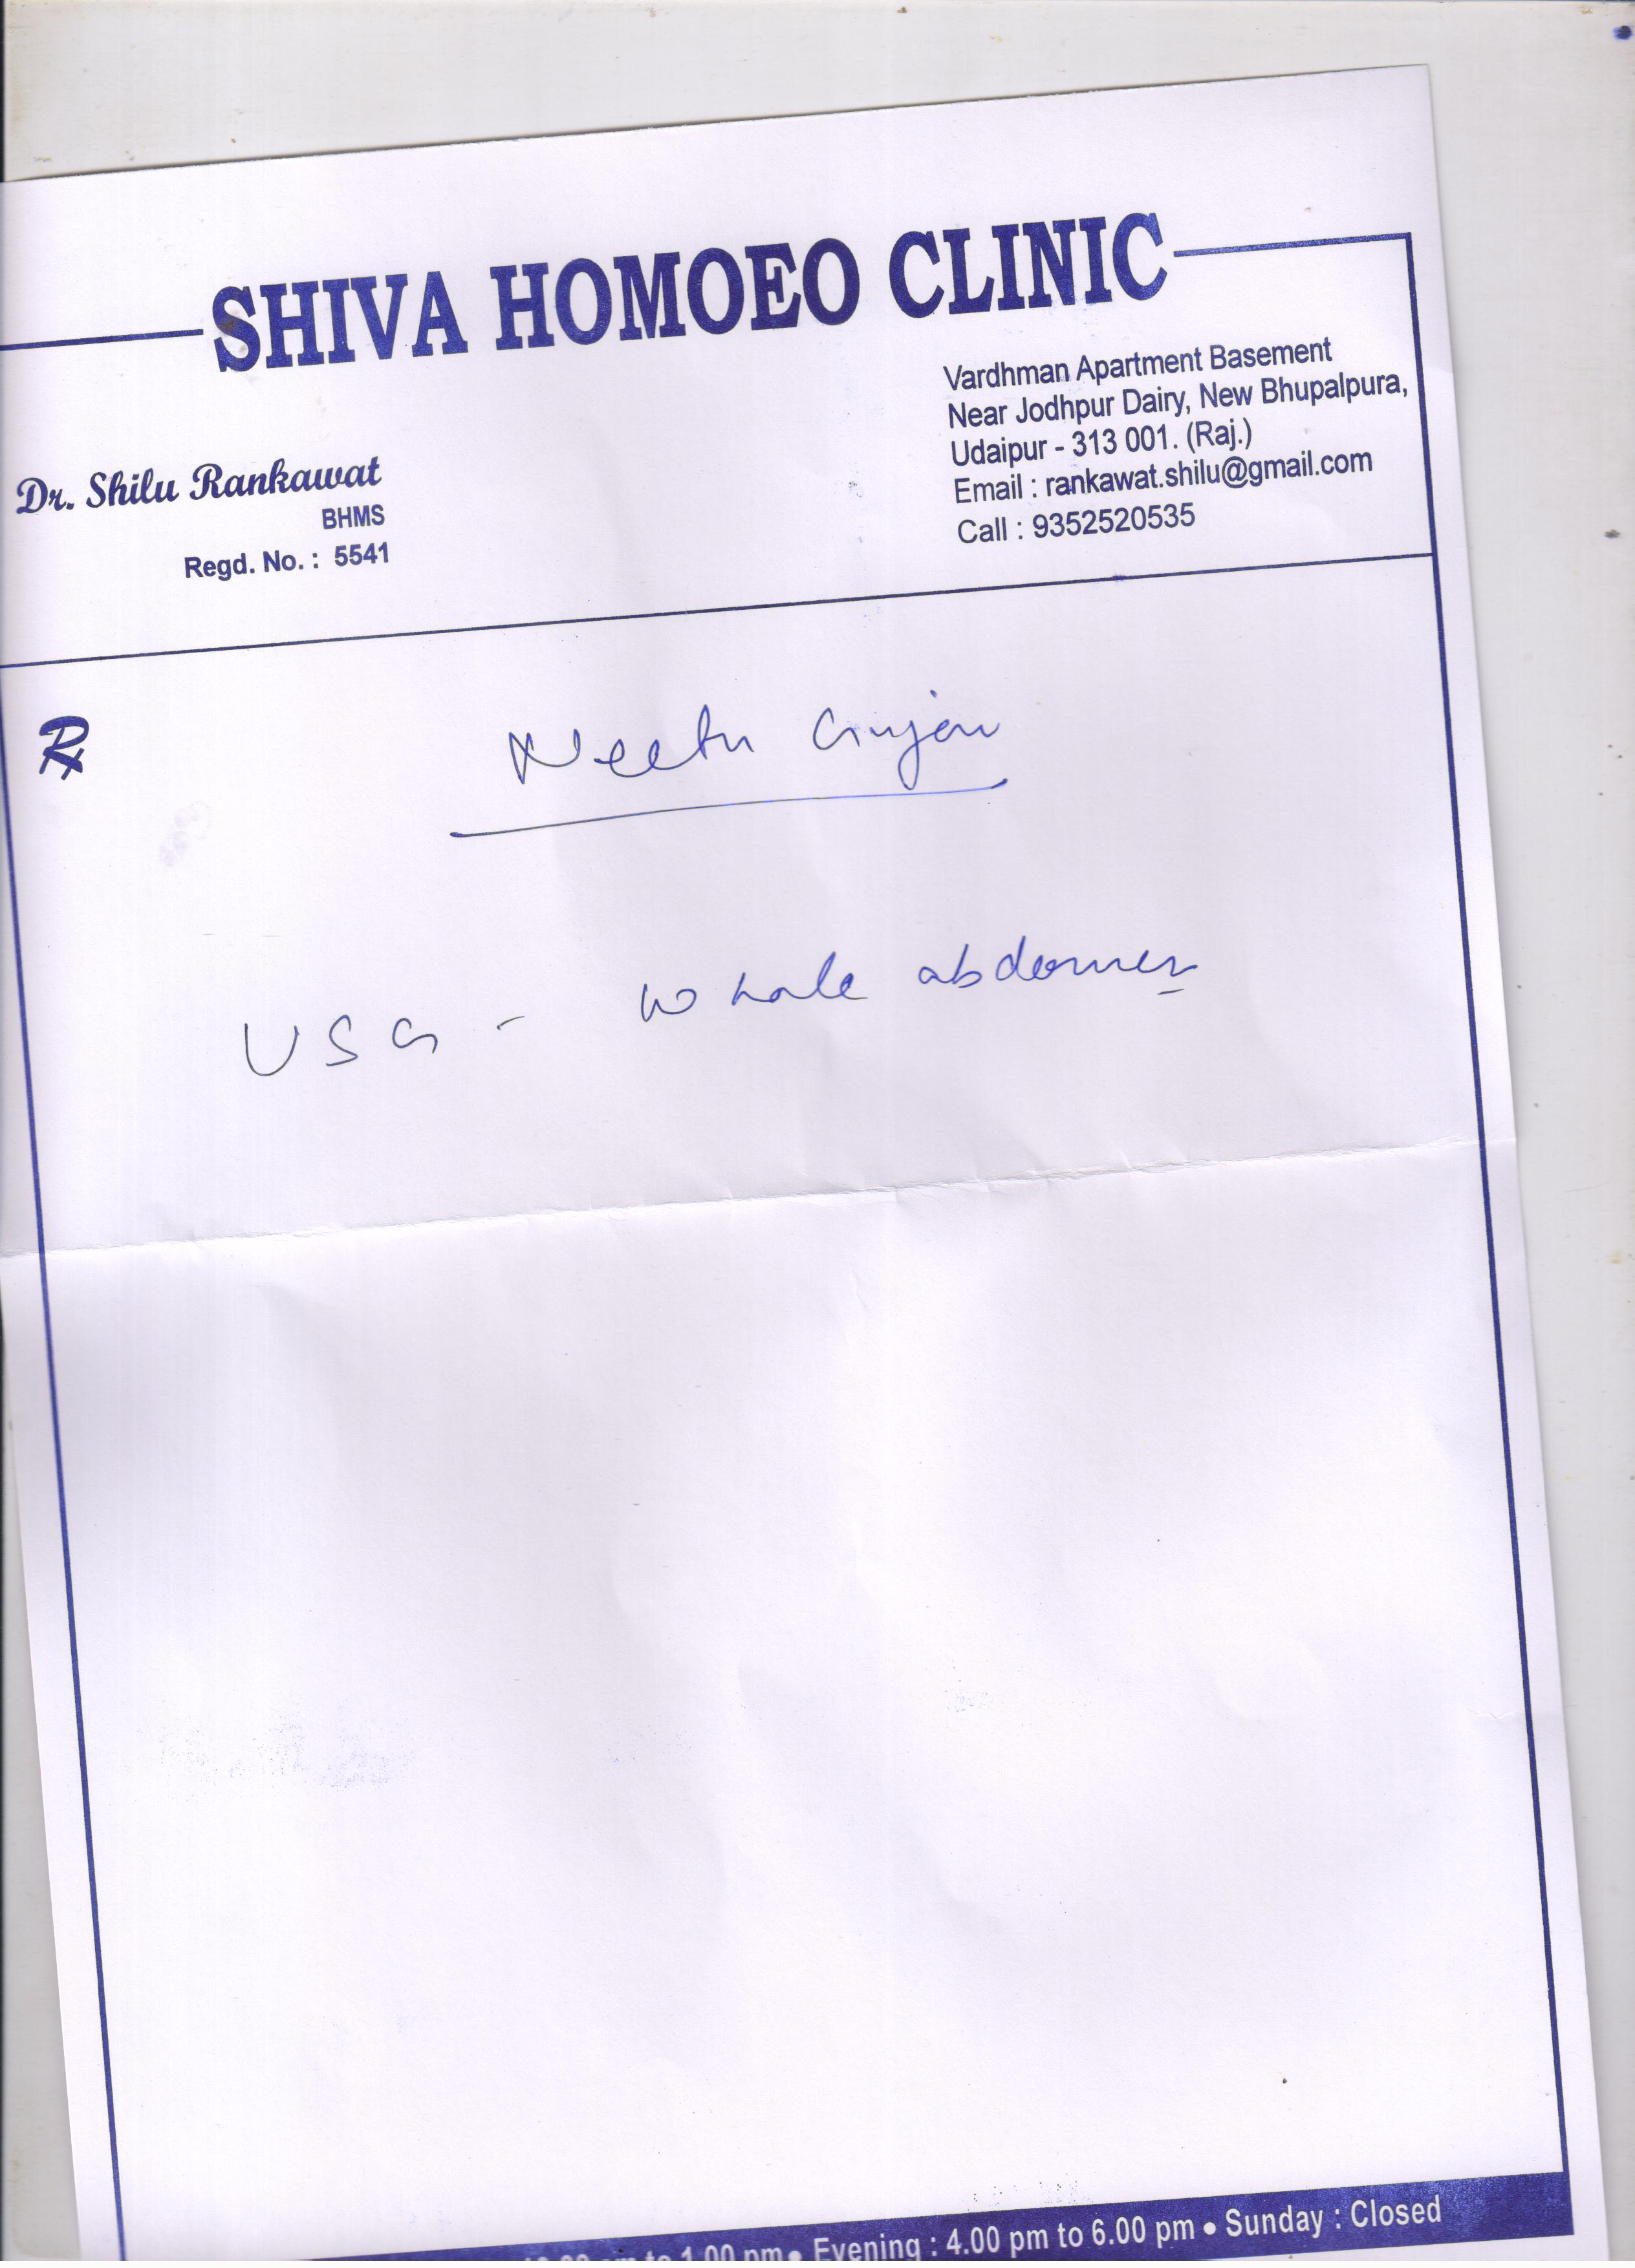 SHIVA HOMOEO CLINIC
Dr. Shilu Rankawat
BHMS
Regd. No. : 5541
Vardhman Apartment Basement
Near Jodhpur Dairy, New Bhupalpura,
Udaipur - 313 001. (Raj.)
Email : rankawat.shilu@gmail.com
Call : 9352520535
Rx
Neetu
USG - Whole abdomen
to 1.00 pm • Evening : 4.00 pm to 6.00 pm • Sunday : Closed